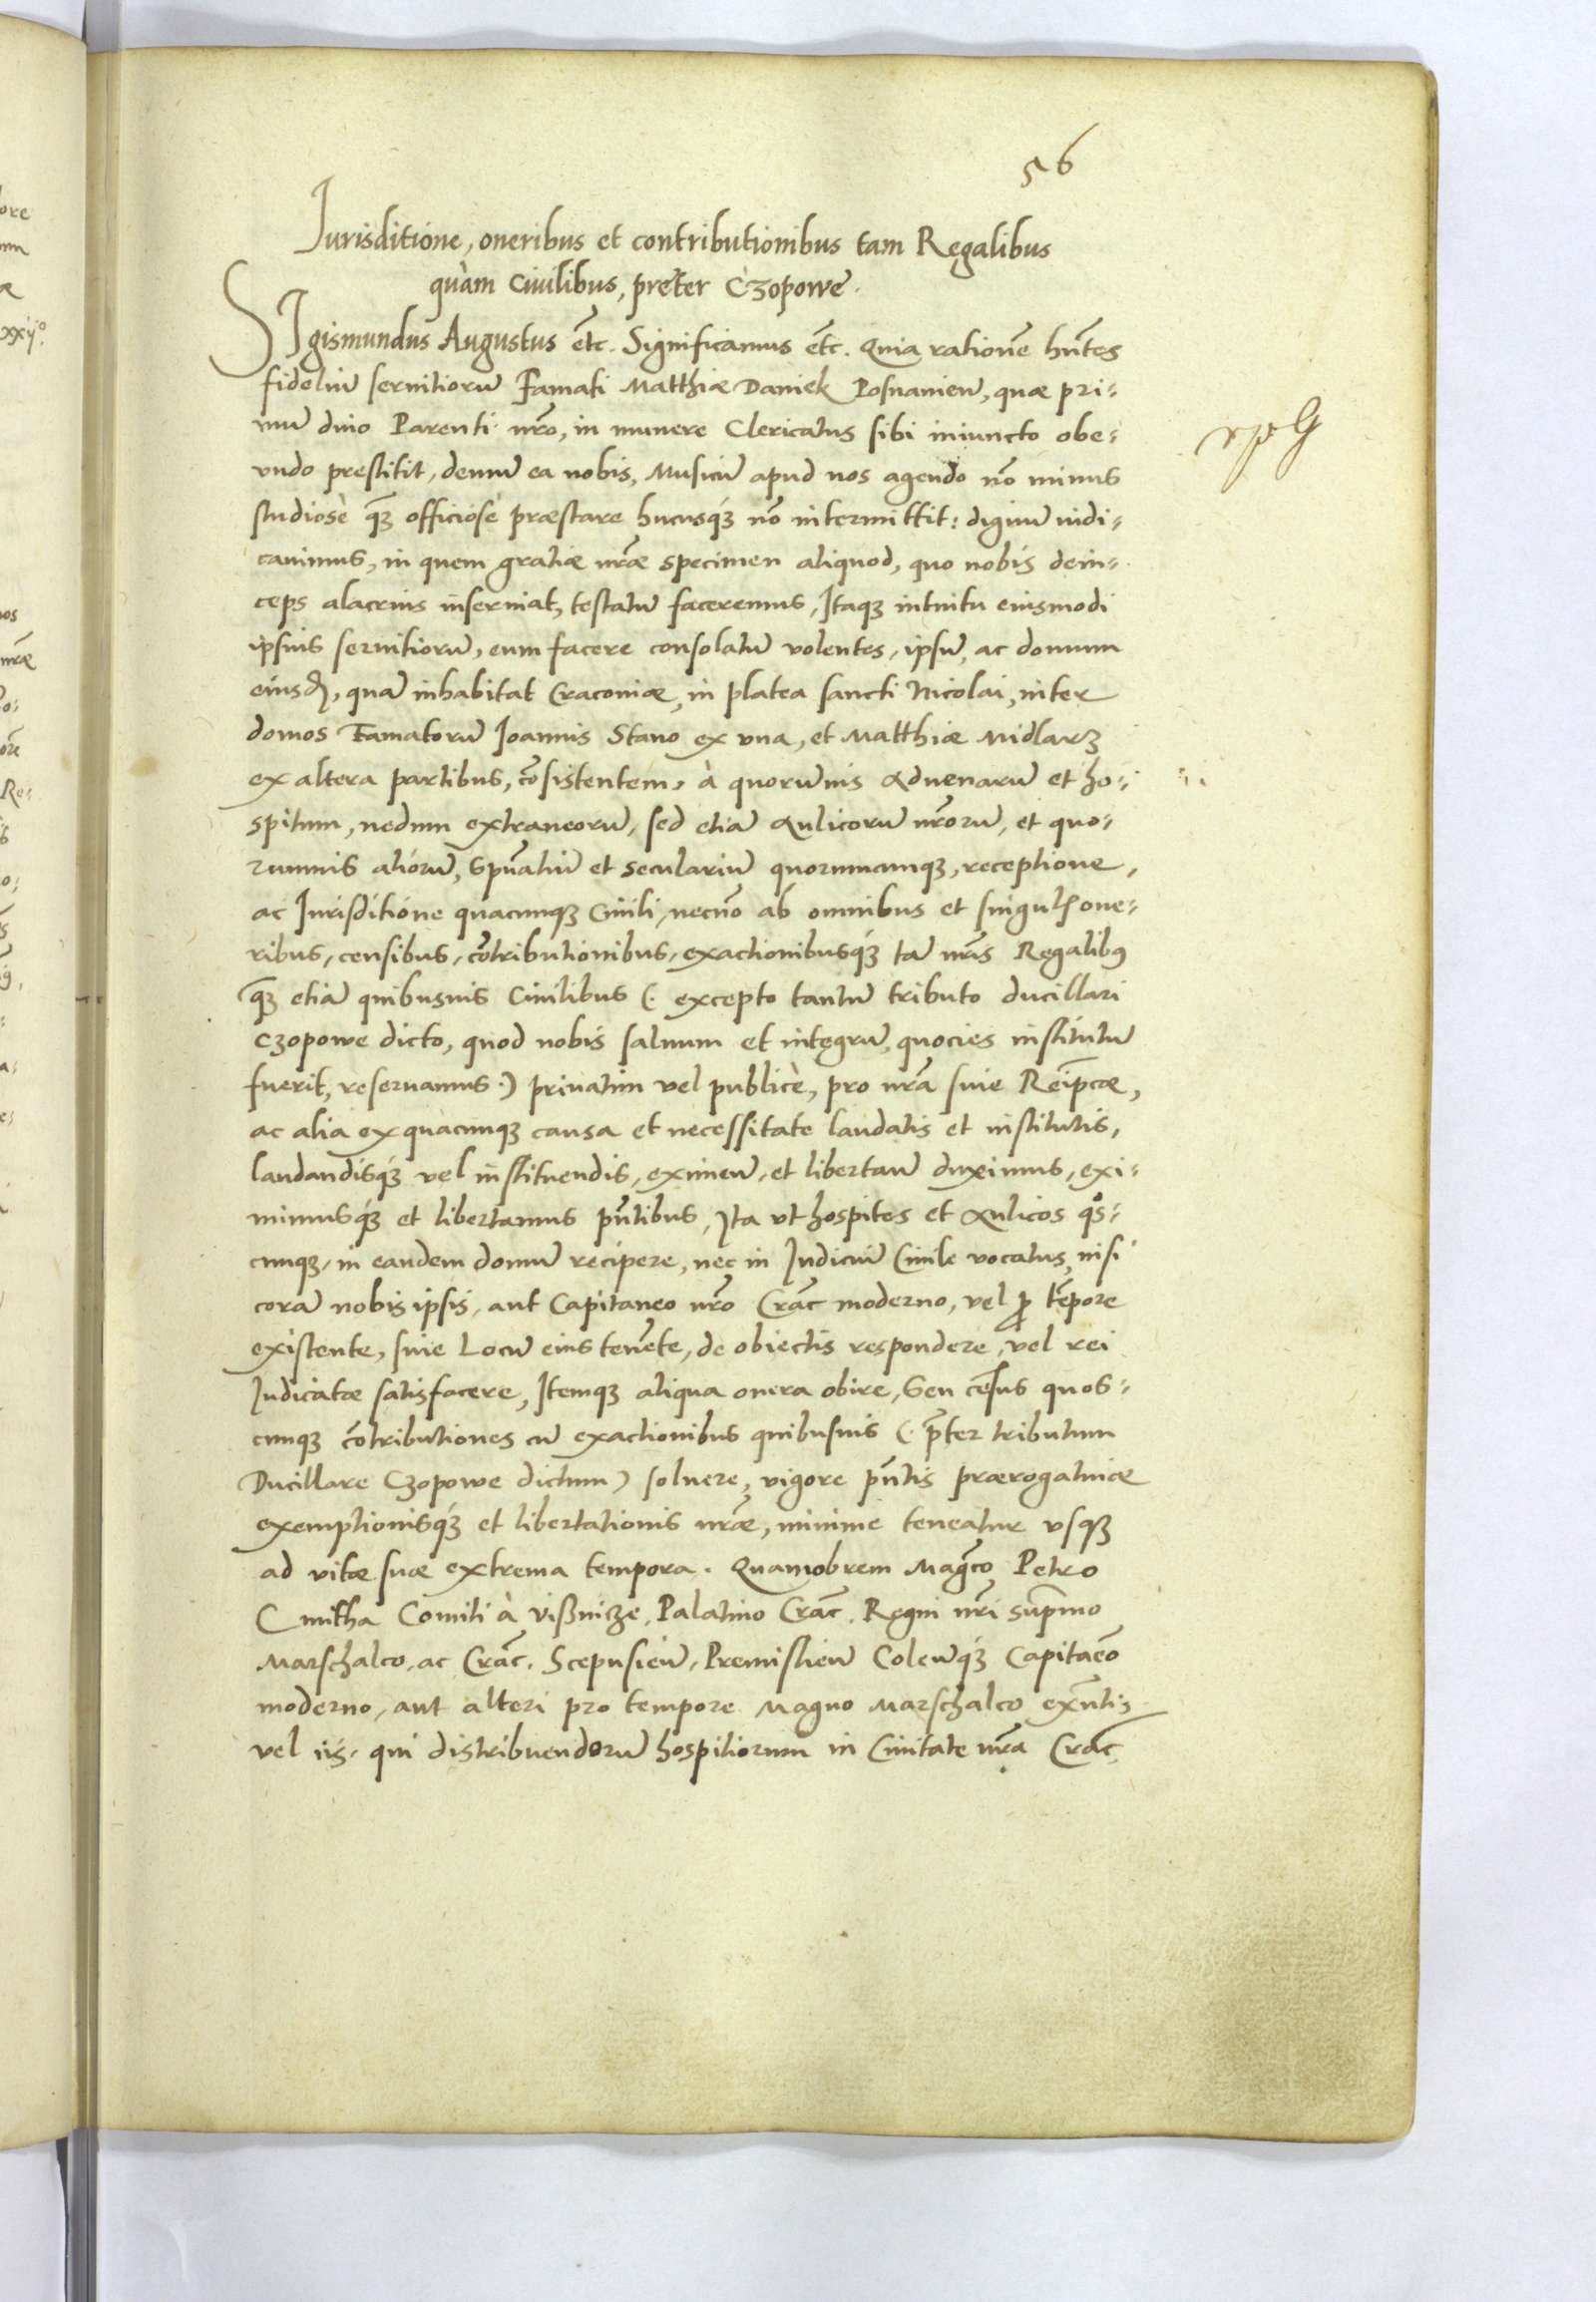 56
Iurisditione, oneribus et contributionibus tam Regalibus
quàm Ciuilibus, preter Czopowe.
SIgismundus Augustus etc̃. Significamus etc̃. Quia rationẽ hñtes
fideliũ seruitiorũ Famati Matthiæ Daniek Posnanieñ, quæ pri=
mũ diuo Parenti nr̃o, in munere Clericatus sibi iniuncto obe=
undo prestitit, demũ ea nobis, Musicũ apud nos agendo nõ minus
studiosè q̃ꝫ officiosè præstare hucusqꝫ nõ intermittit: dignũ iudi=
cauimus, in quem gratiæ nr̃æ specimen aliquod, quo nobis dein=
ceps alacrius inseruiat, testatũ faceremus, Itaqꝫ intuitu eiusmodi
ipsius seruitiorũ, eum facere consolatũ volentes, ipsũ, ac domum
eiusd, quã inhabitat Cracouiæ, in platea sancti Nicolai, inter
domos Famatorũ Ioannis Stano ex vna, et Matthiæ Midlarz
ex altera partibus, cõsistentem, à quorũuis Aduenarũ et ho=
spitum, nedum extraneorũ, sed etiã Aulicorũ nr̃orũ, et quo=
rumuis aliorũ, Spũaliũ et seculariũ quorumcunqꝫ, receptione,
ac Iurisditione quacunqꝫ Ciuili, necnõ ab omnibus et singul one=
ribus, censibus, cõtributionibus, exactionibusqꝫ tã nr̃is Regalibꝰ
q̃ꝫ etiã quibusuis Ciuilibus (. excepto tantũ tributo ducillari
Czopowe dicto, quod nobis saluum et integrũ, quocies institutũ
fuerit, reseruamus .) priuatim vel publicè, pro nr̃a siue Reipcæ,
ac alia ex quacunqꝫ causa et necessitate laudatis et institutis,
laudandisqꝫ vel instituendis, eximeñ, et libertañ duximus, exi=
mimusqꝫ et libertamus pñtibus, Ita vt hospites et Aulicos qos=
cunqꝫ, in eandem domũ recipere, nec in Iudiciũ Ciuile vocatus, nisi
corã nobis ipsis, aut Capitaneo nr̃o Crac̃ moderno, vel ꝓ tẽpore
existente, siue Locũ eius tenẽte, de obiectis respondere, vel rei
Iudicatæ satisfacere, Itemqꝫ aliqua onera obire, Seu cẽsus quos=
cunqꝫ cõtributiones cũ exactionibus quibusuis (. p̃ter tributum
Ducillare Czopowe dictum) soluere, vigore pñtis prærogatiuæ
exemptionisqꝫ et libertationis nr̃æ, minimè teneatur vsqꝫ
ad vitæ suæ extrema tempora. Quamobrem Mag̃co Petro
Cmitha Comiti à Vißnicze, Palatino Crac̃. Regni nr̃i Supmo
Marschalco, ac Crac̃. Scepusieñ, Premislieñ Coleñqꝫ Capitaẽo
moderno, aut alteri pro tempore Magno Marschalco exñtis
vel iis, qui distribuendorũ hospitiorum in Ciuitate nr̃a Crac̃